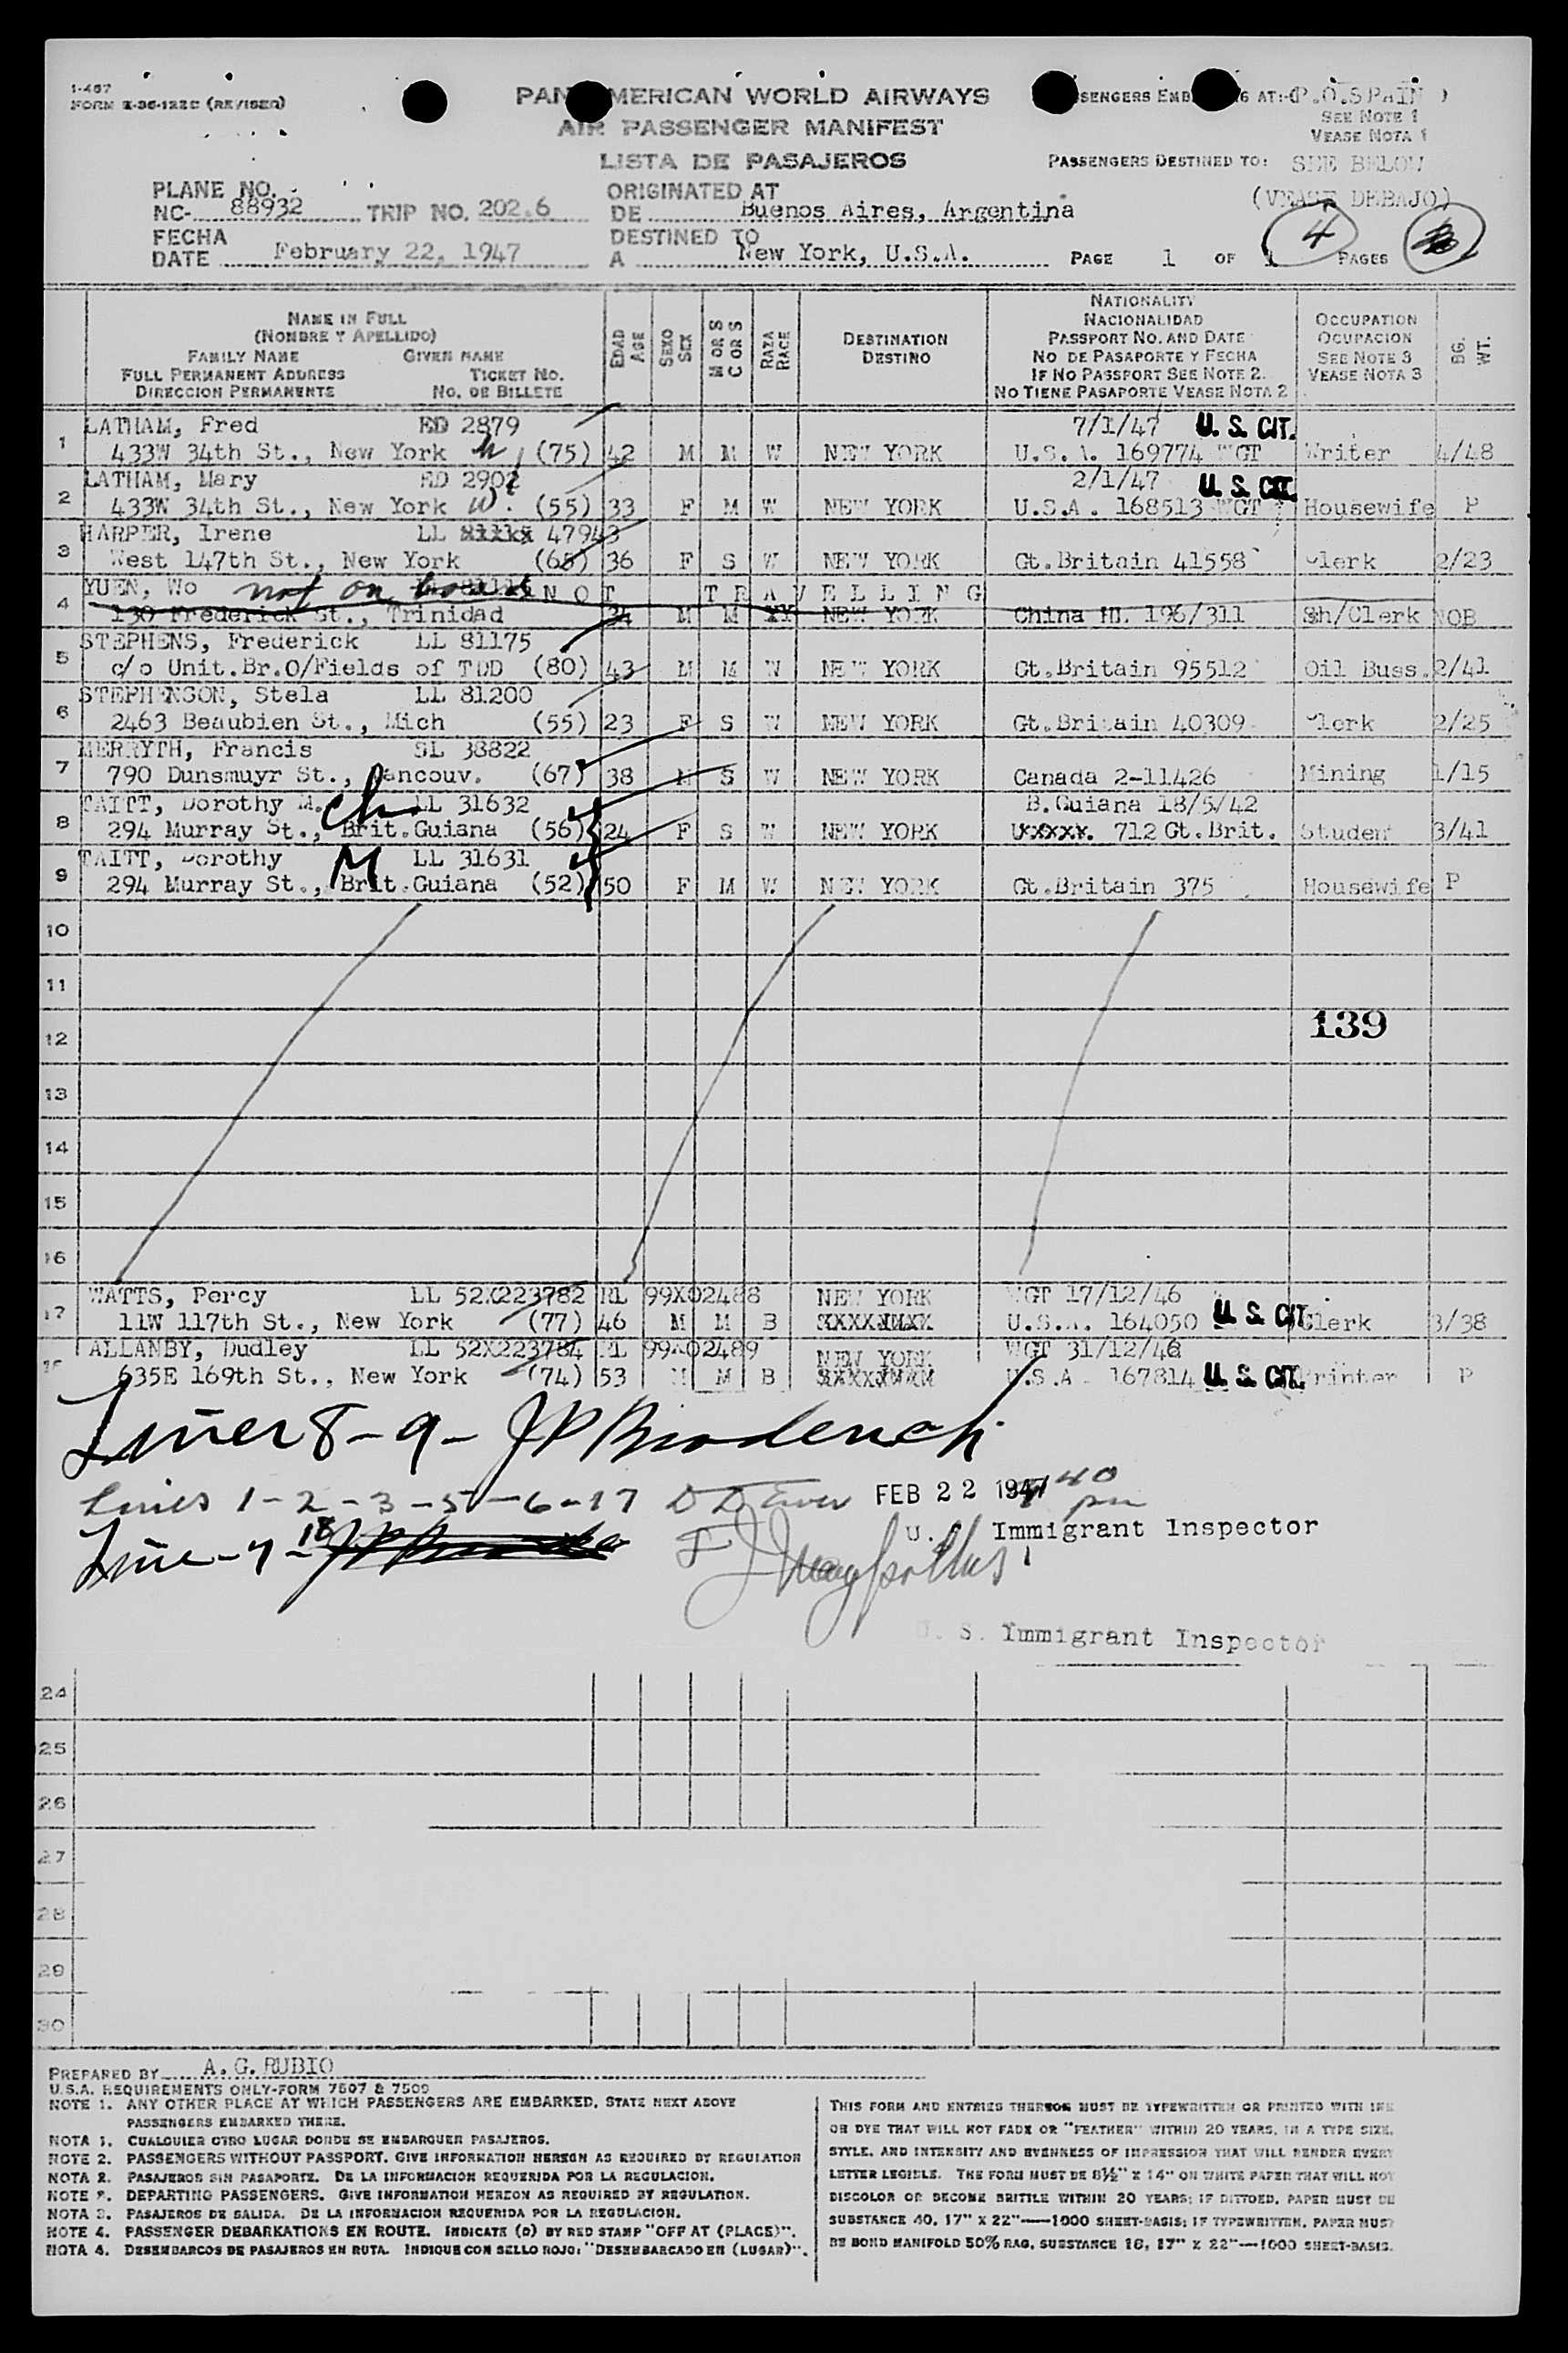 1-467
FORM E-36-122C (REVISED)
PAN AMERICAN WORLD AIRWAYS
AIR PASSENGER MANIFEST
LISTA DE PASAJEROS
AT:-(P.O.SPAIN )
SEE NOTE 1
VEASE NOTA 1
PASSENGERS DESTINED TO: SEE BELOW
(VEASE DEBAJO)
PLANE NO.
NC- 88932 TRIP NO. 202.6
ORIGINATED AT
DE Buenos Aires, Argentina
FECHA
DATE February 22, 1947
DESTINED TO
A New York, U.S.A.
PAGE 1 OF 1 PAGES
4
NAME IN FULL
(NOMBRE Y APELLIDO)
FAMILY NAME GIVEN NAME
FULL PERMANENT ADDRESS TICKET NO.
DIRECCION PERMANENTE NO. DE BILLETE
EDAD
AGE
SEXO
SEX
M OR S
C OR S
RAZA
RACE
DESTINATION
DESTINO
NATIONALITY
NACIONALIDAD
PASSPORT NO. AND DATE
NO DE PASAPORTE Y FECHA
IF NO PASSPORT SEE NOTE 2.
NO TIENE PASAPORTE VEASE NOTA 2
OCCUPATION
OCUPACION
SEE NOTE 3
VEASE NOTA 3
BG.
WT.
1 LATHAM, Fred ED 2879 7/1/47 U. S. CIT.
433W 34th St., New York (75) 42 M M W NEW YORK U.S.A. 169774 WGT Writer 4/48
2 LATHAM, Mary ED 2902 2/1/47 U. S. CIT.
433W 34th St., New York W. (55) 33 F M W NEW YORK U.S.A. 168513 WGT Housewife P
3 HARPER, Irene LL 47943
West 147th St., New York (65) 36 F S W NEW YORK Gt.Britain 41558 Clerk 2/23
4 YUEN, Wo not on board NOT TRAVELLING
139 Frederick St., Trinidad 34 M M XY NEW YORK China HD. 196/311 Sh/Clerk NOB
5 STEPHENS, Frederick LL 81175
c/o Unit.Br.O/Fields of TDD (80) 43 M M W NEW YORK Gt.Britain 95512 Oil Buss. 2/41
6 STEPHENSON, Stela LL 81200
2463 Beaubien St., Mich (55) 23 F S W NEW YORK Gt.Britain 40309 Clerk 2/25
7 MERRYTH, Francis SL 38822
790 Dunsmuyr St., Vancouv. (67) 38 M S W NEW YORK Canada 2-11426 Mining 1/15
8 TAITT, Dorothy M. Ch LL 31632 B.Guiana 18/5/42
294 Murray St., Brit.Guiana (56) 24 F S W NEW YORK Uxxxxx. 712 Gt.Brit. Student 3/41
9 TAITT, Dorothy M LL 31631
294 Murray St., Brit.Guiana (52) 50 F M W NEW YORK Gt.Britain 375 Housewife P
10
11
12 139
13
14
15
16
17 WATTS, Percy LL 52X223782 RL 99X02488 NEW YORK WGT 17/12/46
11W 117th St., New York (77) 46 M M B U.S.A. 164050 U. S. CIT. Clerk 3/38
18 ALLANBY, Dudley LL 52X223784 RL 99X02489 NEW YORK WGT 31/12/46
635E 169th St., New York (74) 53 M M B U.S.A. 167814 U. S. CIT. Printer P
Lines 8-9-
Lines 1-2-3-5-6-17 FEB 22 1947 40 pm
U. S. Immigrant Inspector
Line-7-18
U. S. Immigrant Inspector
24
25
26
27
28
29
30
PREPARED BY A. G. RUBIO
U.S.A. REQUIREMENTS ONLY-FORM 7507 & 7509
NOTE 1. ANY OTHER PLACE AT WHICH PASSENGERS ARE EMBARKED, STATE NEXT ABOVE
PASSENGERS EMBARKED THERE.
NOTA 1. CUALQUIER OTRO LUGAR DONDE SE EMBARQUER PASAJEROS.
NOTE 2. PASSENGERS WITHOUT PASSPORT. GIVE INFORMATION HEREON AS REQUIRED BY REGULATION
NOTA 2. PASAJEROS SIN PASAPORTE. DE LA INFORMACION REQUERIDA POR LA REGULACION.
NOTE 3. DEPARTING PASSENGERS. GIVE INFORMATION HEREON AS REQUIRED BY REGULATION.
NOTA 3. PASAJEROS DE SALIDA. DE LA INFORMACION REQUERIDA POR LA REGULACION.
NOTE 4. PASSENGER DEBARKATIONS EN ROUTE. INDICATE (D) BY RED STAMP "OFF AT (PLACE)".
NOTA 4. DESEMBARCOS DE PASAJEROS EN RUTA. INDIQUE CON SELLO ROJO: "DESEMBARCADO EN (LUGAR)".
THIS FORM AND ENTRIES THEREON MUST BE TYPEWRITTEN OR PRINTED WITH INK
OR DYE THAT WILL NOT FADE OR "FEATHER" WITHIN 20 YEARS, IN A TYPE SIZE,
STYLE, AND INTENSITY AND EVENNESS OF IMPRESSION THAT WILL RENDER EVERY
LETTER LEGIBLE. THE FORM MUST BE 8½" X 14" ON WHITE PAPER THAT WILL NOT
DISCOLOR OR BECOME BRITTLE WITHIN 20 YEARS; IF DITTOED, PAPER MUST BE
SUBSTANCE 40, 17" X 22"—1000 SHEET-BASIS; IF TYPEWRITTEN, PAPER MUST
BE BOND MANIFOLD 50% RAG, SUBSTANCE 16, 17" X 22"—1000 SHEET-BASIS.